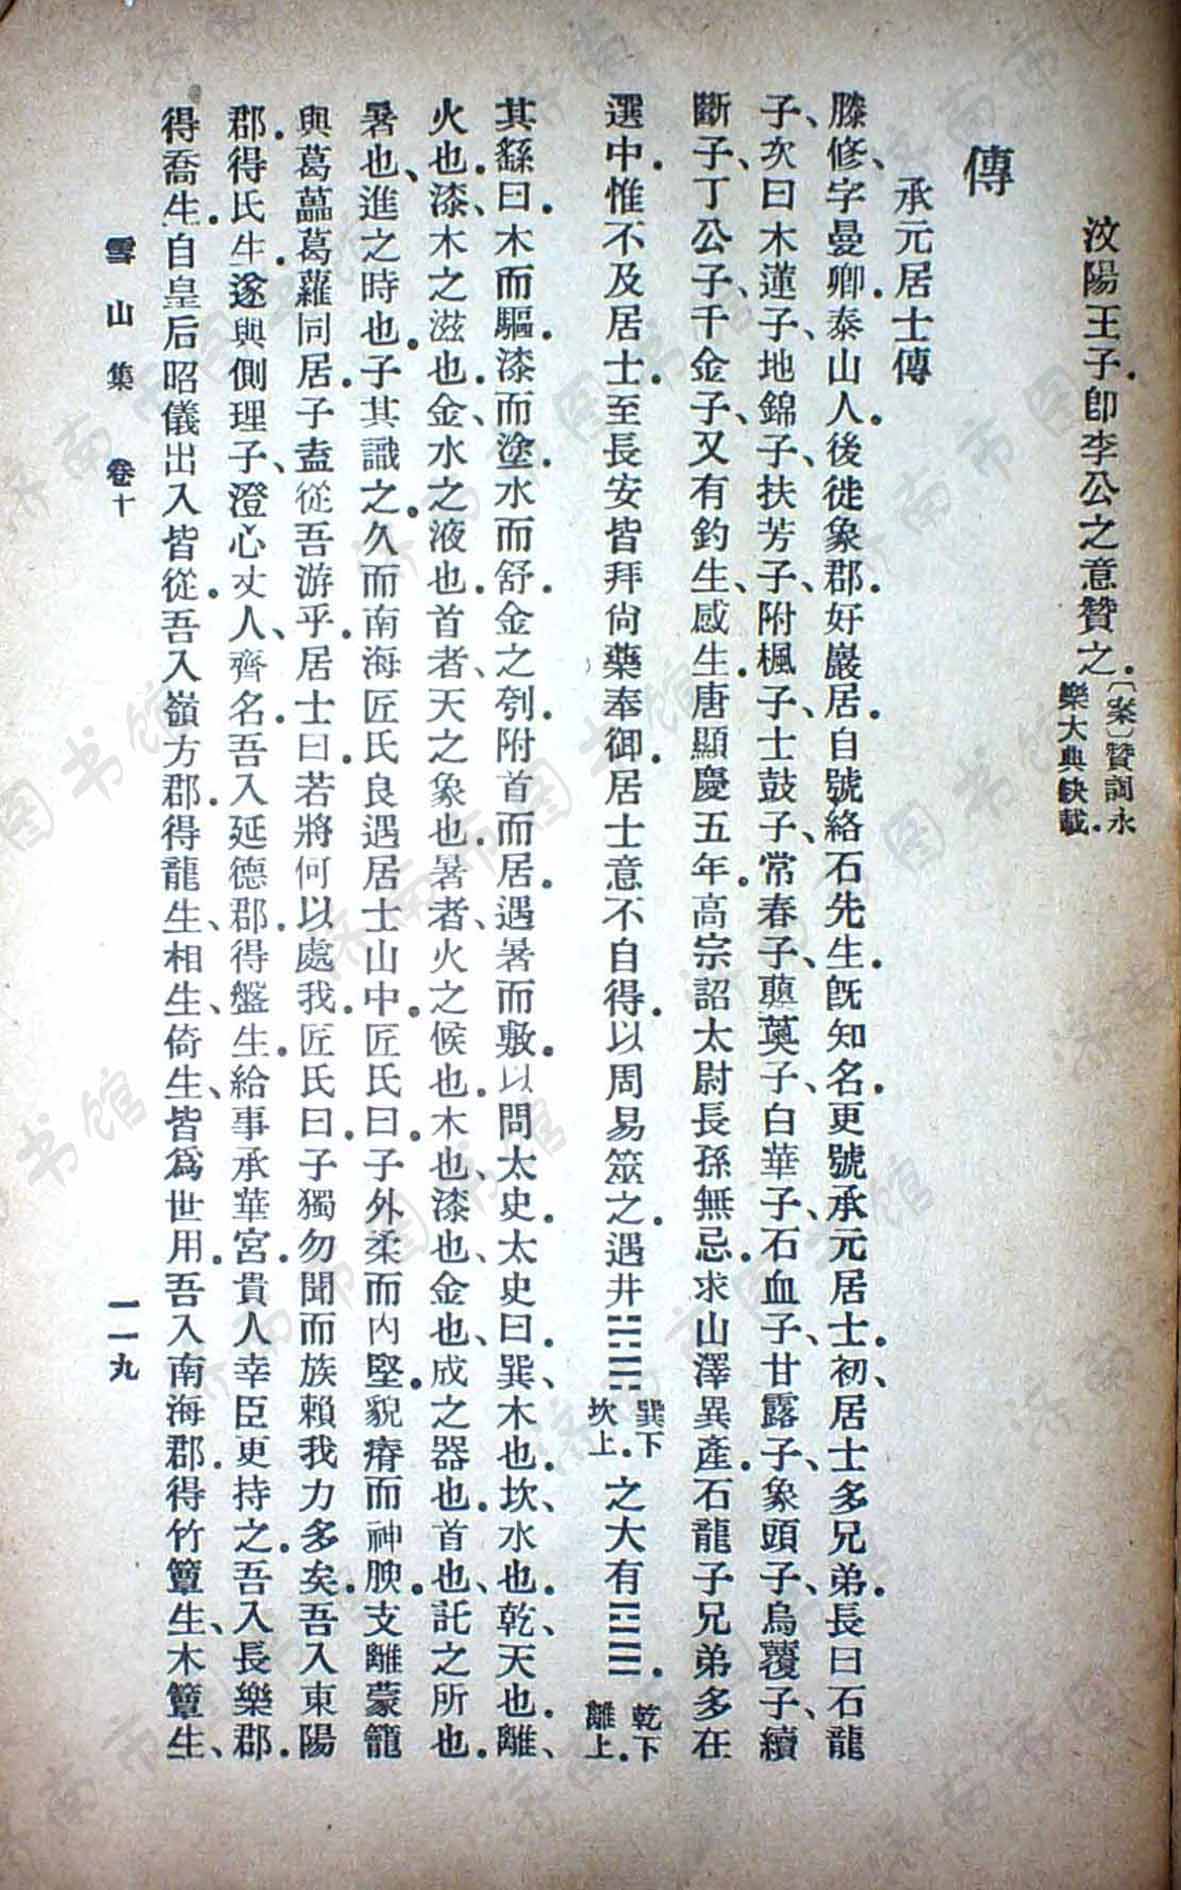 汶陽王子卽李公之意贊之。〔案〕贊詞永
樂大典缺載。
傳
承元居士傳
滕修、字曼卿。泰山人。後徙象郡。好巖居。自號絡石先生。旣知名。更號承元居士。初、居士多兄弟。長曰石龍
子、次曰木蓮子、地錦子、扶芳子、附楓子、士鼓子、常春子、蘡薁子、白華子、石血子、甘露子、象頭子、烏覆子、續
斷子、丁公子、千金子、又有釣生、感生。唐顯慶五年。高宗詔太尉長孫無忌。求山澤異產。石龍子兄弟多在
選中。惟不及居士。至長安皆拜尙藥奉御。居士意不自得。以周易筮之。遇井䷯巽下
坎上。之大有䷍。乾下
離上。
其繇曰。木而驅。漆而塗。水而舒。金之刳。附首而居。遇暑而敷。以問太史。太史曰。巽、木也。坎、水也。乾、天也。離、
火也。漆、木之滋也。金、水之液也。首者、天之象也。暑者、火之候也。木也、漆也、金也、成之器也。首也、託之所也。
暑也、進之時也。子其識之。久而南海匠氏良遇居士山中。匠氏曰。子外柔而內堅。貌瘠而神腴。支離蒙籠
與葛藟葛蘿同居。子盍從吾游乎。居士曰。若將何以處我。匠氏曰。子獨勿聞而族賴我力多矣。吾入東陽
郡。得氐生。遂與側理子、澄心丈人、齊名。吾入延德郡。得盤生。給事承華宮。貴人幸臣更持之。吾入長樂郡。
得喬生。自皇后昭儀出入皆從。吾入嶺方郡。得龍生、相生、倚生、皆爲世用。吾入南海郡。得竹簟生、木簟生、
雪山集 卷十
一一九